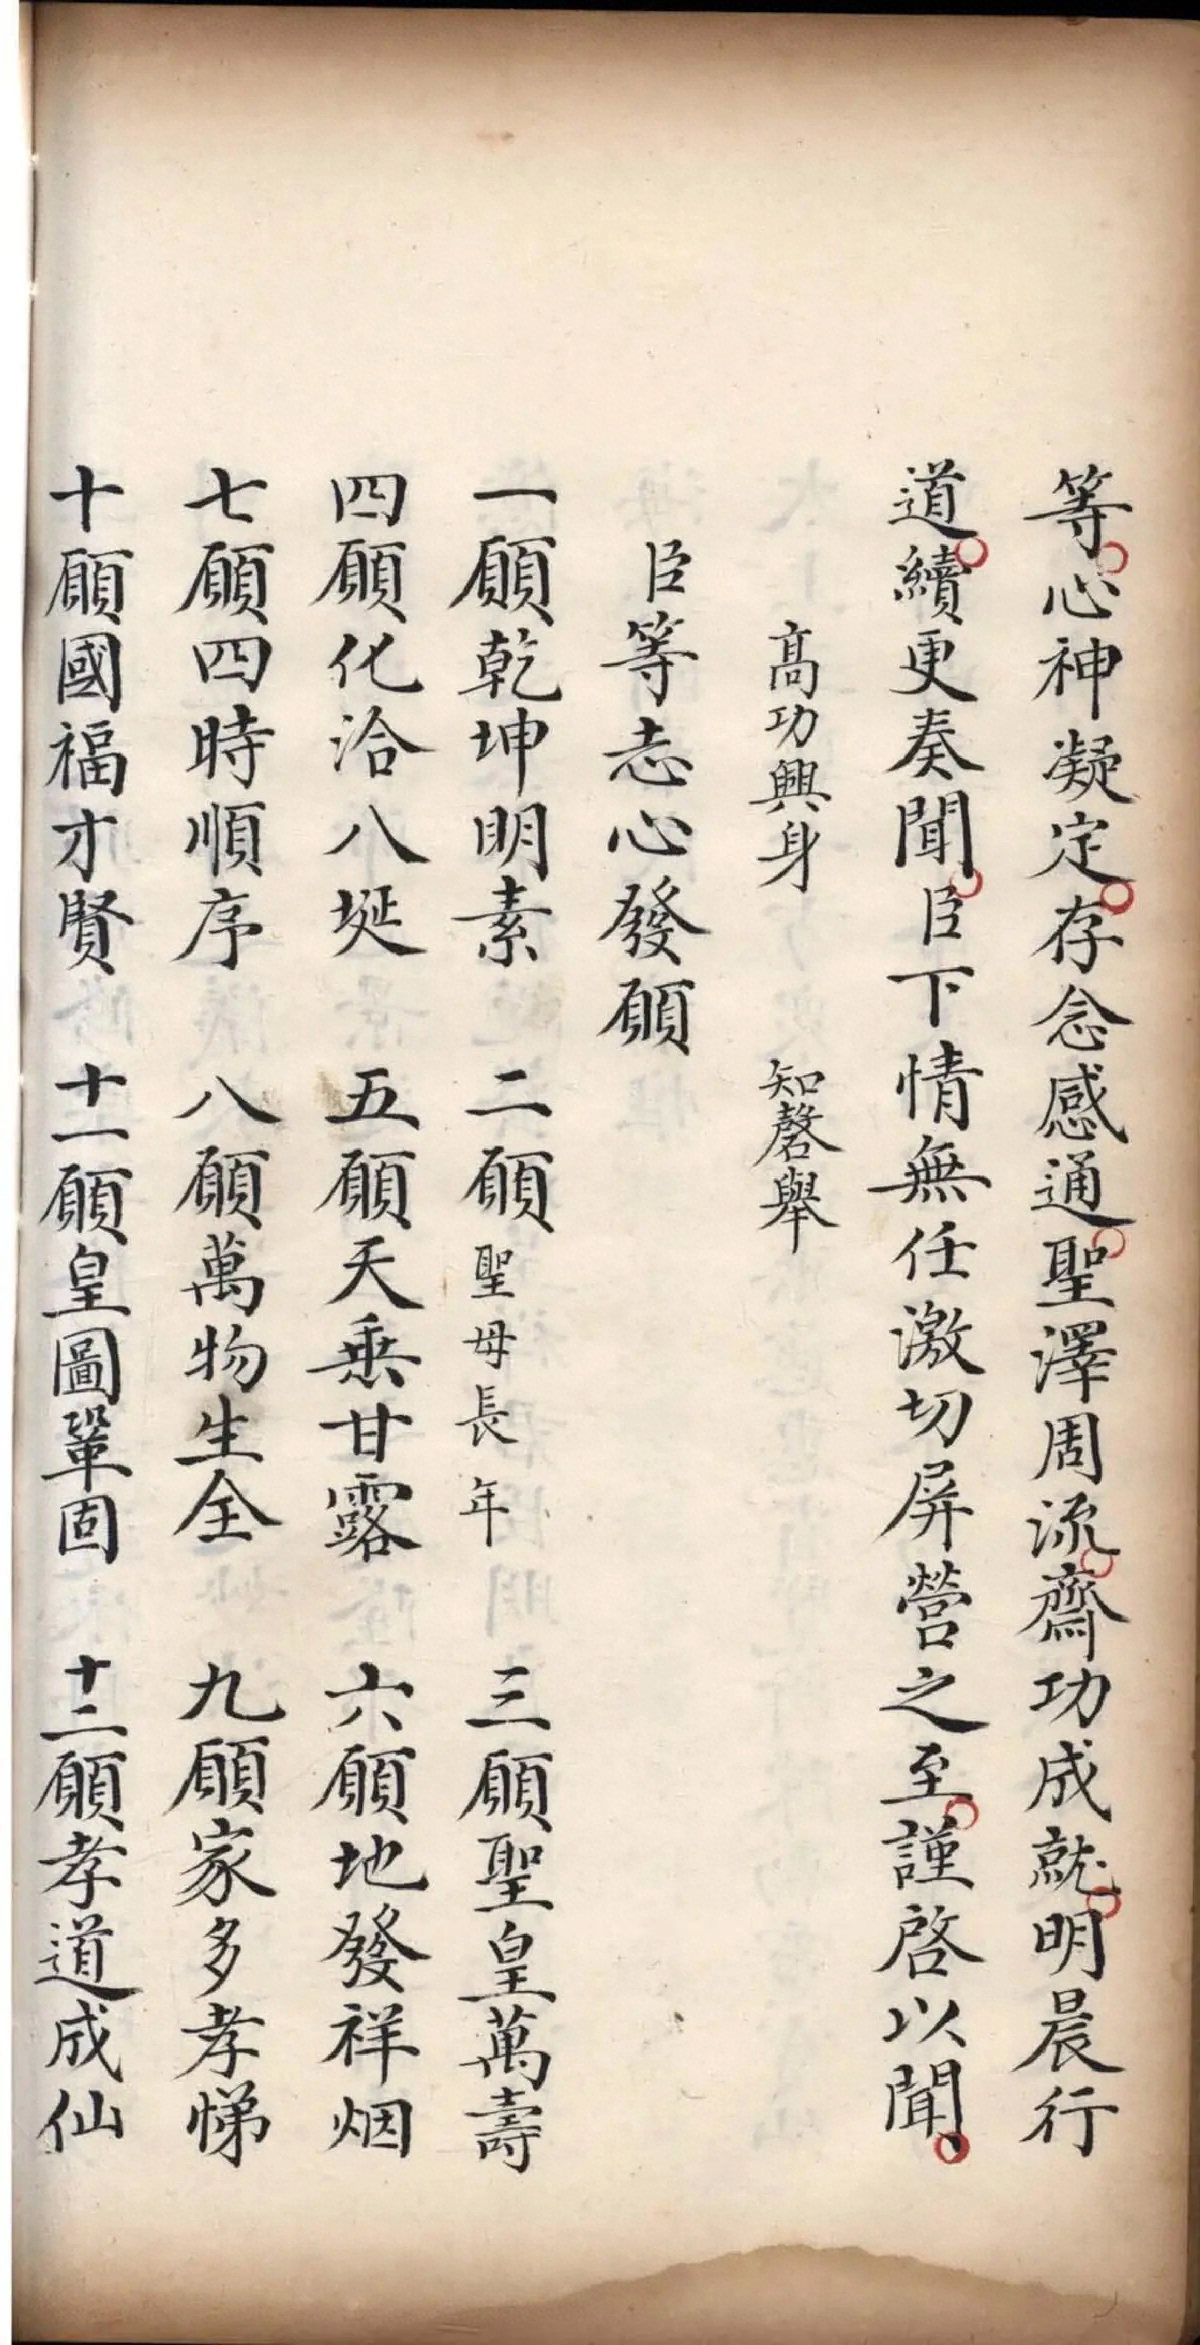 等心神凝定存念感通聖澤周流齋功成就明晨行
道續更奏聞臣下情無任激切屏營之至謹啓以聞
高功興身 知磬舉
臣等志心發願
一願乾坤明素 二願聖母長年 三願聖皇萬壽
四願化洽八埏 五願天乗甘露 六願地發祥烟
七願四時順序 八願萬物生全 九願家多孝悌
十願國福才賢 十一願皇圖鞏固 十二願孝道成仙